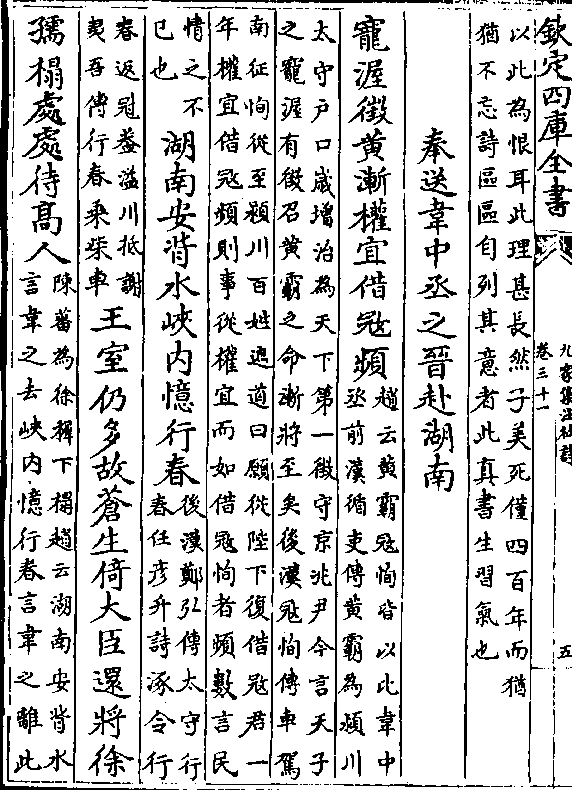 欽定四庫全書
九家集注杜詩
卷三十一
五
以此為恨耳此理甚長然子美死僅四百年而猶
猶不忘詩區區自列其意者此真書生習氣也
奉送韋中丞之晉赴湖南
寵渥徵黃漸權宜借冦頻
趙云黄霸冦恂皆以此韋中
丞前漢循吏傳黃霸為潁川
太守户口歲增治為天下第一徵守京兆尹今言天子
之寵渥有徵召黃霸之命漸將至矣後漢冦恂傳車駕
南征恂從至潁川百姓遮道曰願從陛下復借冦君一
年權宜借冦頻則事從權宜而如借冦恂者頻數言民
情之不
已也
湖南安背水峽内憶行春
後漢鄭弘傳太守行
春任彦升詩涿令行
春返冠葢溢川抵謝
夷吾傳行春乘柴車
王室仍多故蒼生倚大臣還將徐
孺榻處處待髙人
陳蕃為徐穉下榻趙云湖南安背水
言韋之去峽内憶行春言韋之離此